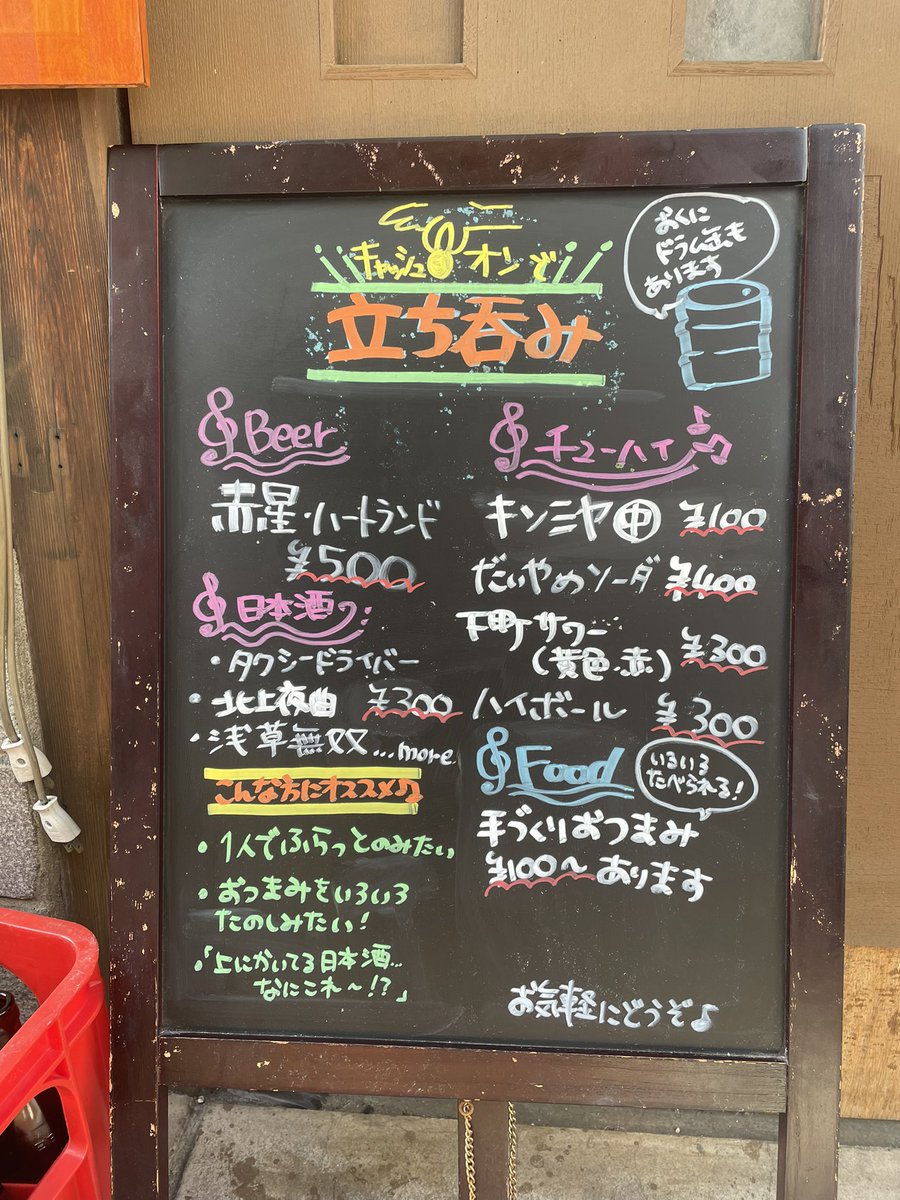 キャッシュオンで
立ち呑み
おくに
ドラム缶も
あります
Beer
赤星・ハートランド
¥500
日本酒
・タクシードライバー
・北上夜曲 ¥300
・浅草無双...more
こんな方にオススメ♪
・1人でふらっとのみたい
・おつまみをいろいろ
たのしみたい!
・「上にかいてる日本酒...
なにこれ〜!?」
チューハイ♪
キンミヤ㊥ ¥100
だいやめソーダ ¥400
下町サワー
(黄色・赤) ¥300
ハイボール ¥300
Food
いろいろ
たべられる!
手づくりおつまみ
¥100〜あります
お気軽にどうぞ♪